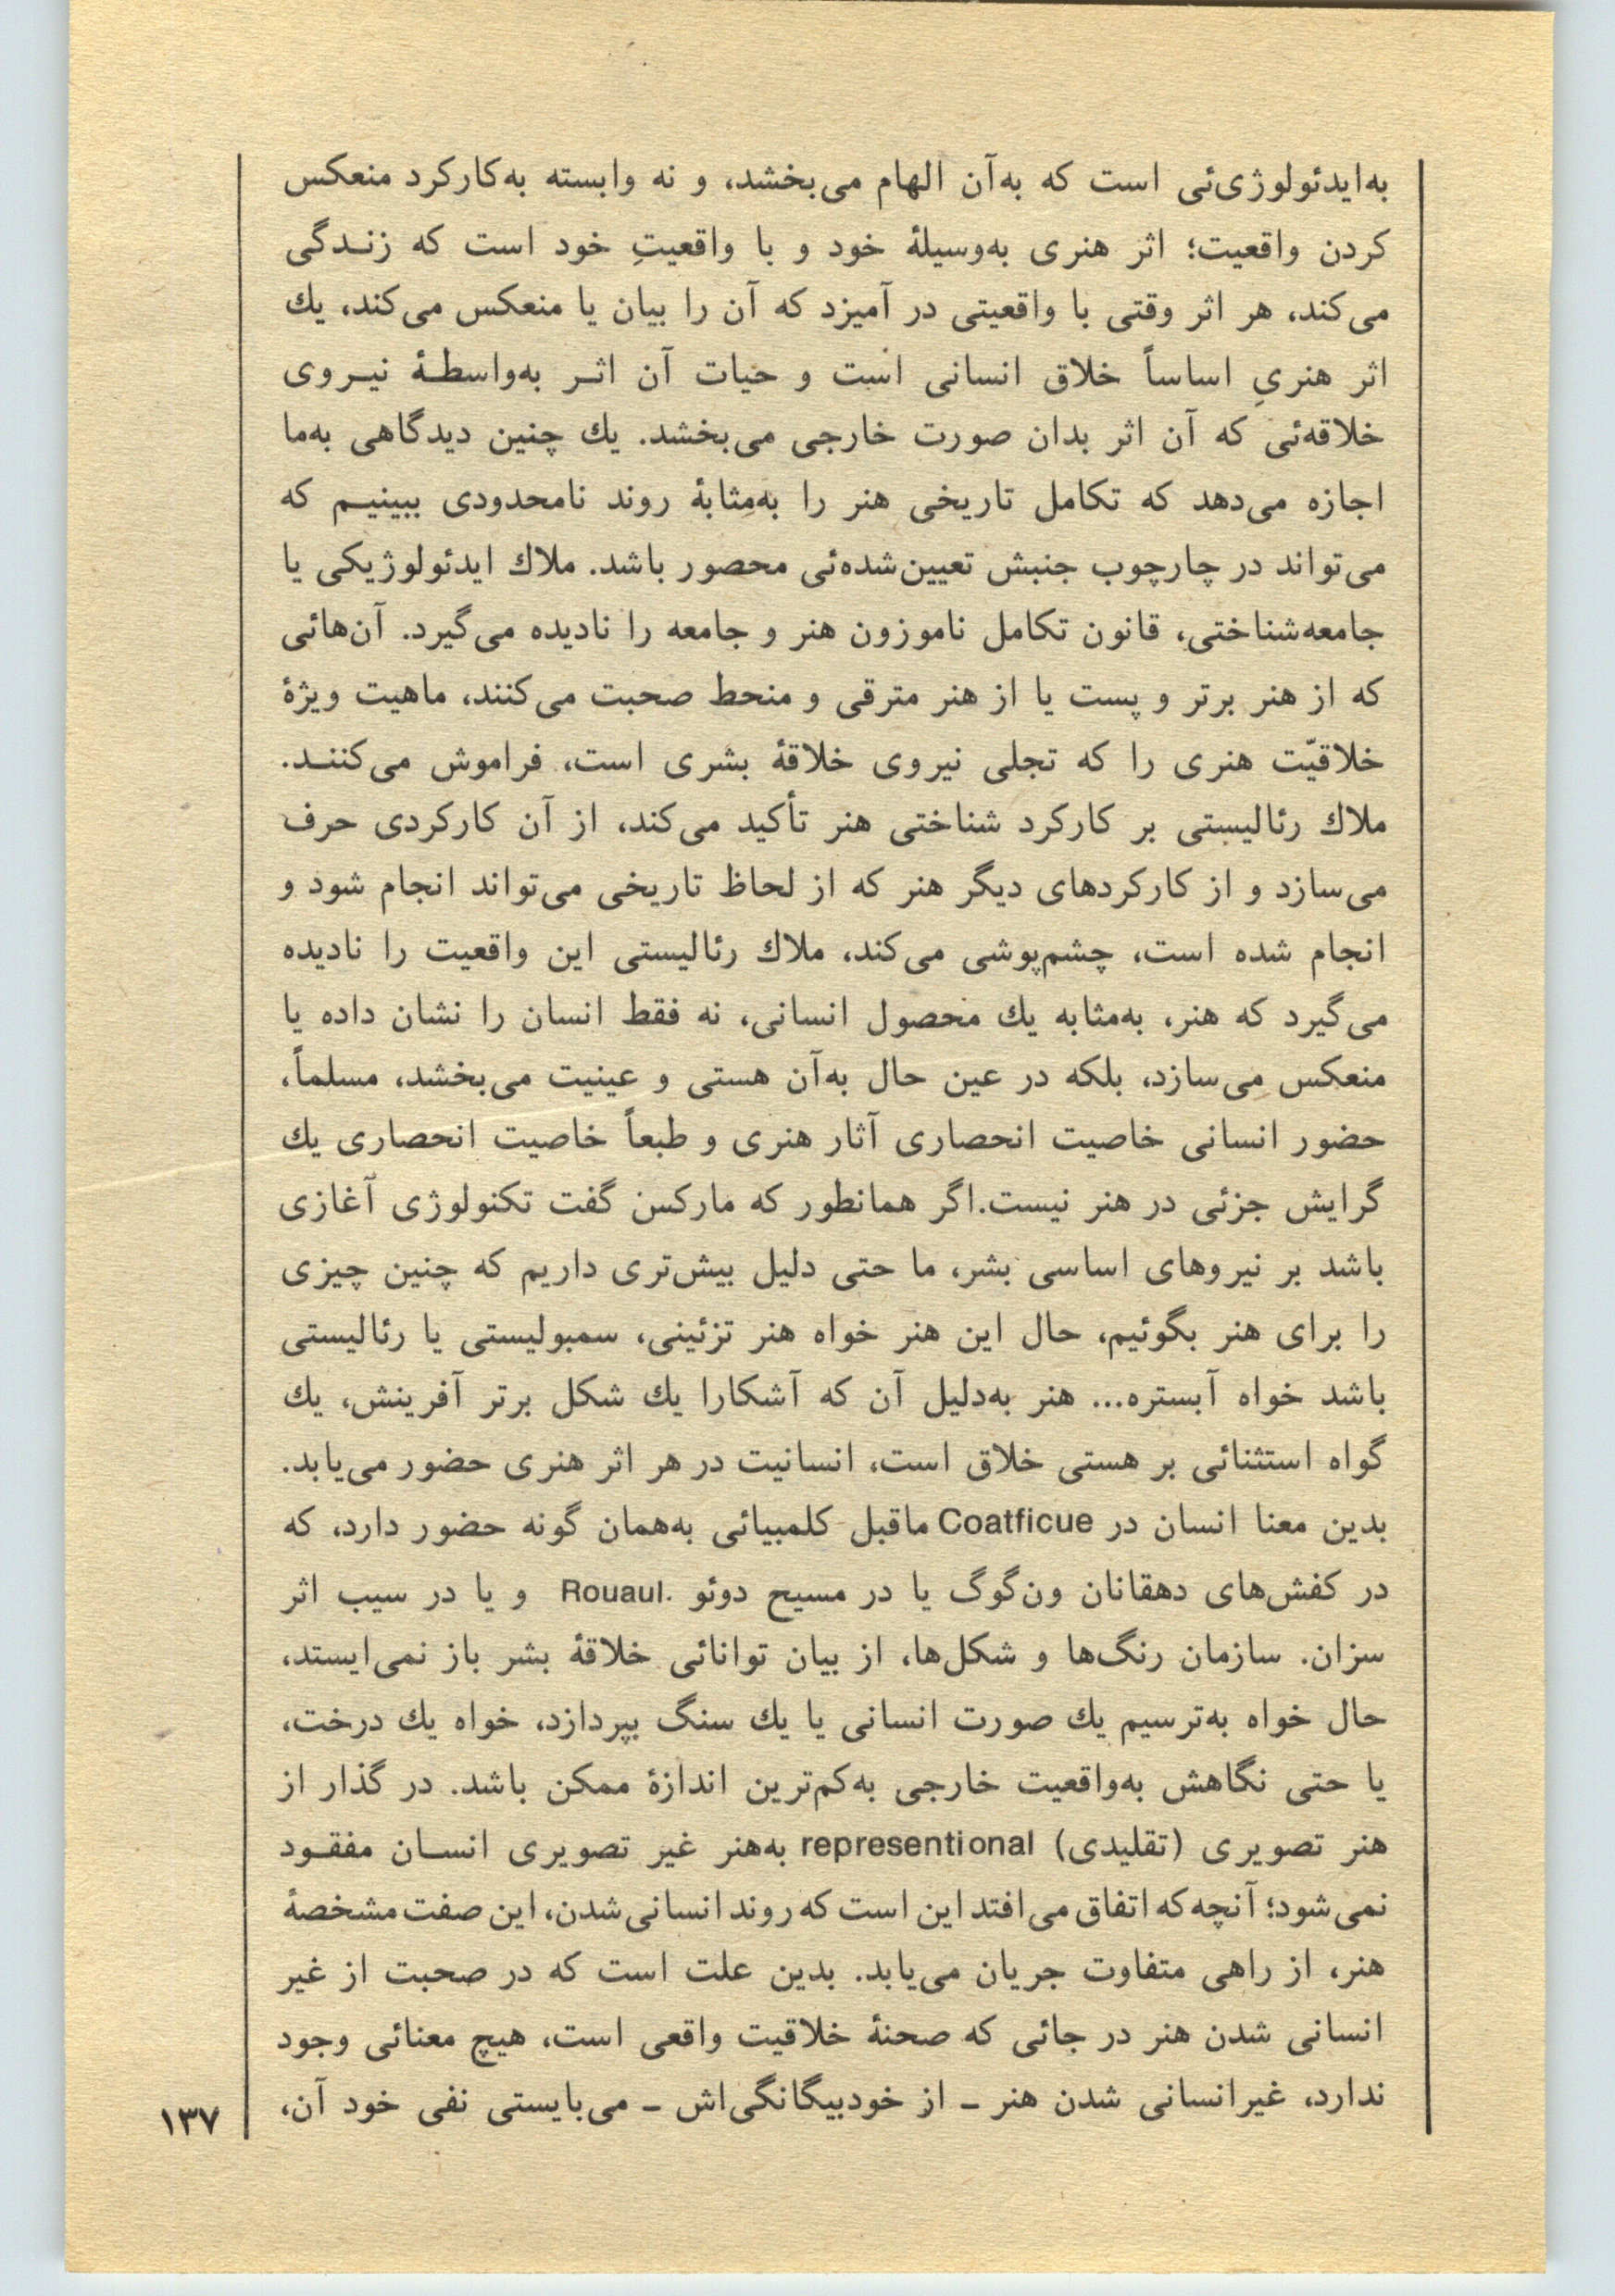 به‌ایدئولوژی‌ئی است که به‌آن الهام می‌بخشد، و نه وابسته به‌کارکرد منعکس
کردن واقعیت؛ اثر هنری به‌وسیلهٔ خود و با واقعیتِ خود است که زنـدگی
می‌کند، هر اثر وقتی با واقعیتی در آمیزد که آن را بیان یا منعکس می‌کند، یك
اثر هنریِ اساساً خلاق انسانی است و حیات آن اثـر به‌واسطـهٔ نیـروی
خلاقه‌ئی که آن اثر بدان صورت خارجی می‌بخشد. یك چنین دیدگاهی به‌ما
اجازه می‌دهد که تکامل تاریخی هنر را به‌مثابهٔ روند نامحدودی ببینیـم که
می‌تواند در چارچوب جنبش تعیین‌شده‌ئی محصور باشد. ملاك ایدئولوژیکی یا
جامعه‌شناختی، قانون تکامل ناموزون هنر و جامعه را نادیده می‌گیرد. آن‌هائی
که از هنر برتر و پست یا از هنر مترقی و منحط صحبت می‌کنند، ماهیت ویژهٔ
خلاقیّت هنری را که تجلی نیروی خلاقهٔ بشری است، فراموش می‌کننـد.
ملاك رئالیستی بر کارکرد شناختی هنر تأکید می‌کند، از آن کارکردی حرف
می‌سازد و از کارکردهای دیگر هنر که از لحاظ تاریخی می‌تواند انجام شود و
انجام شده است، چشم‌پوشی می‌کند، ملاك رئالیستی این واقعیت را نادیده
می‌گیرد که هنر، به‌مثابه یك محصول انسانی، نه فقط انسان را نشان داده یا
منعکس می‌سازد، بلکه در عین حال به‌آن هستی و عینیت می‌بخشد، مسلماً،
حضور انسانی خاصیت انحصاری آثار هنری و طبعاً خاصیت انحصاری یك
گرایش جزئی در هنر نیست.اگر همانطور که مارکس گفت تکنولوژی آغازی
باشد بر نیروهای اساسی بشر، ما حتی دلیل بیش‌تری داریم که چنین چیزی
را برای هنر بگوئیم، حال این هنر خواه هنر تزئینی، سمبولیستی یا رئالیستی
باشد خواه آبستره... هنر به‌دلیل آن که آشکارا یك شکل برتر آفرینش، یك
گواه استثنائی بر هستی خلاق است، انسانیت در هر اثر هنری حضور می‌یابد.
بدین معنا انسان در Coatficue ماقبل کلمبیائی به‌همان گونه حضور دارد، که
در کفش‌های دهقانان ون‌گوگ یا در مسیح دوئو .Rouaul و یا در سیب اثر
سزان. سازمان رنگ‌ها و شکل‌ها، از بیان توانائی خلاقهٔ بشر باز نمی‌ایستد،
حال خواه به‌ترسیم یك صورت انسانی یا یك سنگ بپردازد، خواه یك درخت،
یا حتی نگاهش به‌واقعیت خارجی به‌کم‌ترین اندازهٔ ممکن باشد. در گذار از
هنر تصویری (تقلیدی) representional به‌هنر غیر تصویری انسـان مفقـود
نمی‌شود؛ آنچه که اتفاق می‌افتد این است که روند انسانی‌شدن، این صفت مشخصهٔ
هنر، از راهی متفاوت جریان می‌یابد. بدین علت است که در صحبت از غیر
انسانی شدن هنر در جائی که صحنهٔ خلاقیت واقعی است، هیچ معنائی وجود
ندارد، غیرانسانی شدن هنر ـ از خودبیگانگی‌اش ـ می‌بایستی نفی خود آن،
۱۳۷